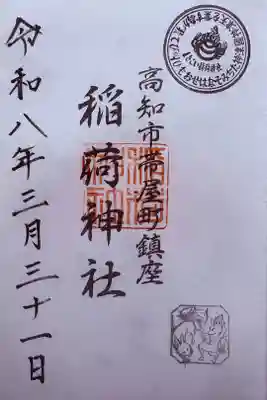 高知市帯屋町鎮座
稲荷神社
令和八年三月三十一日